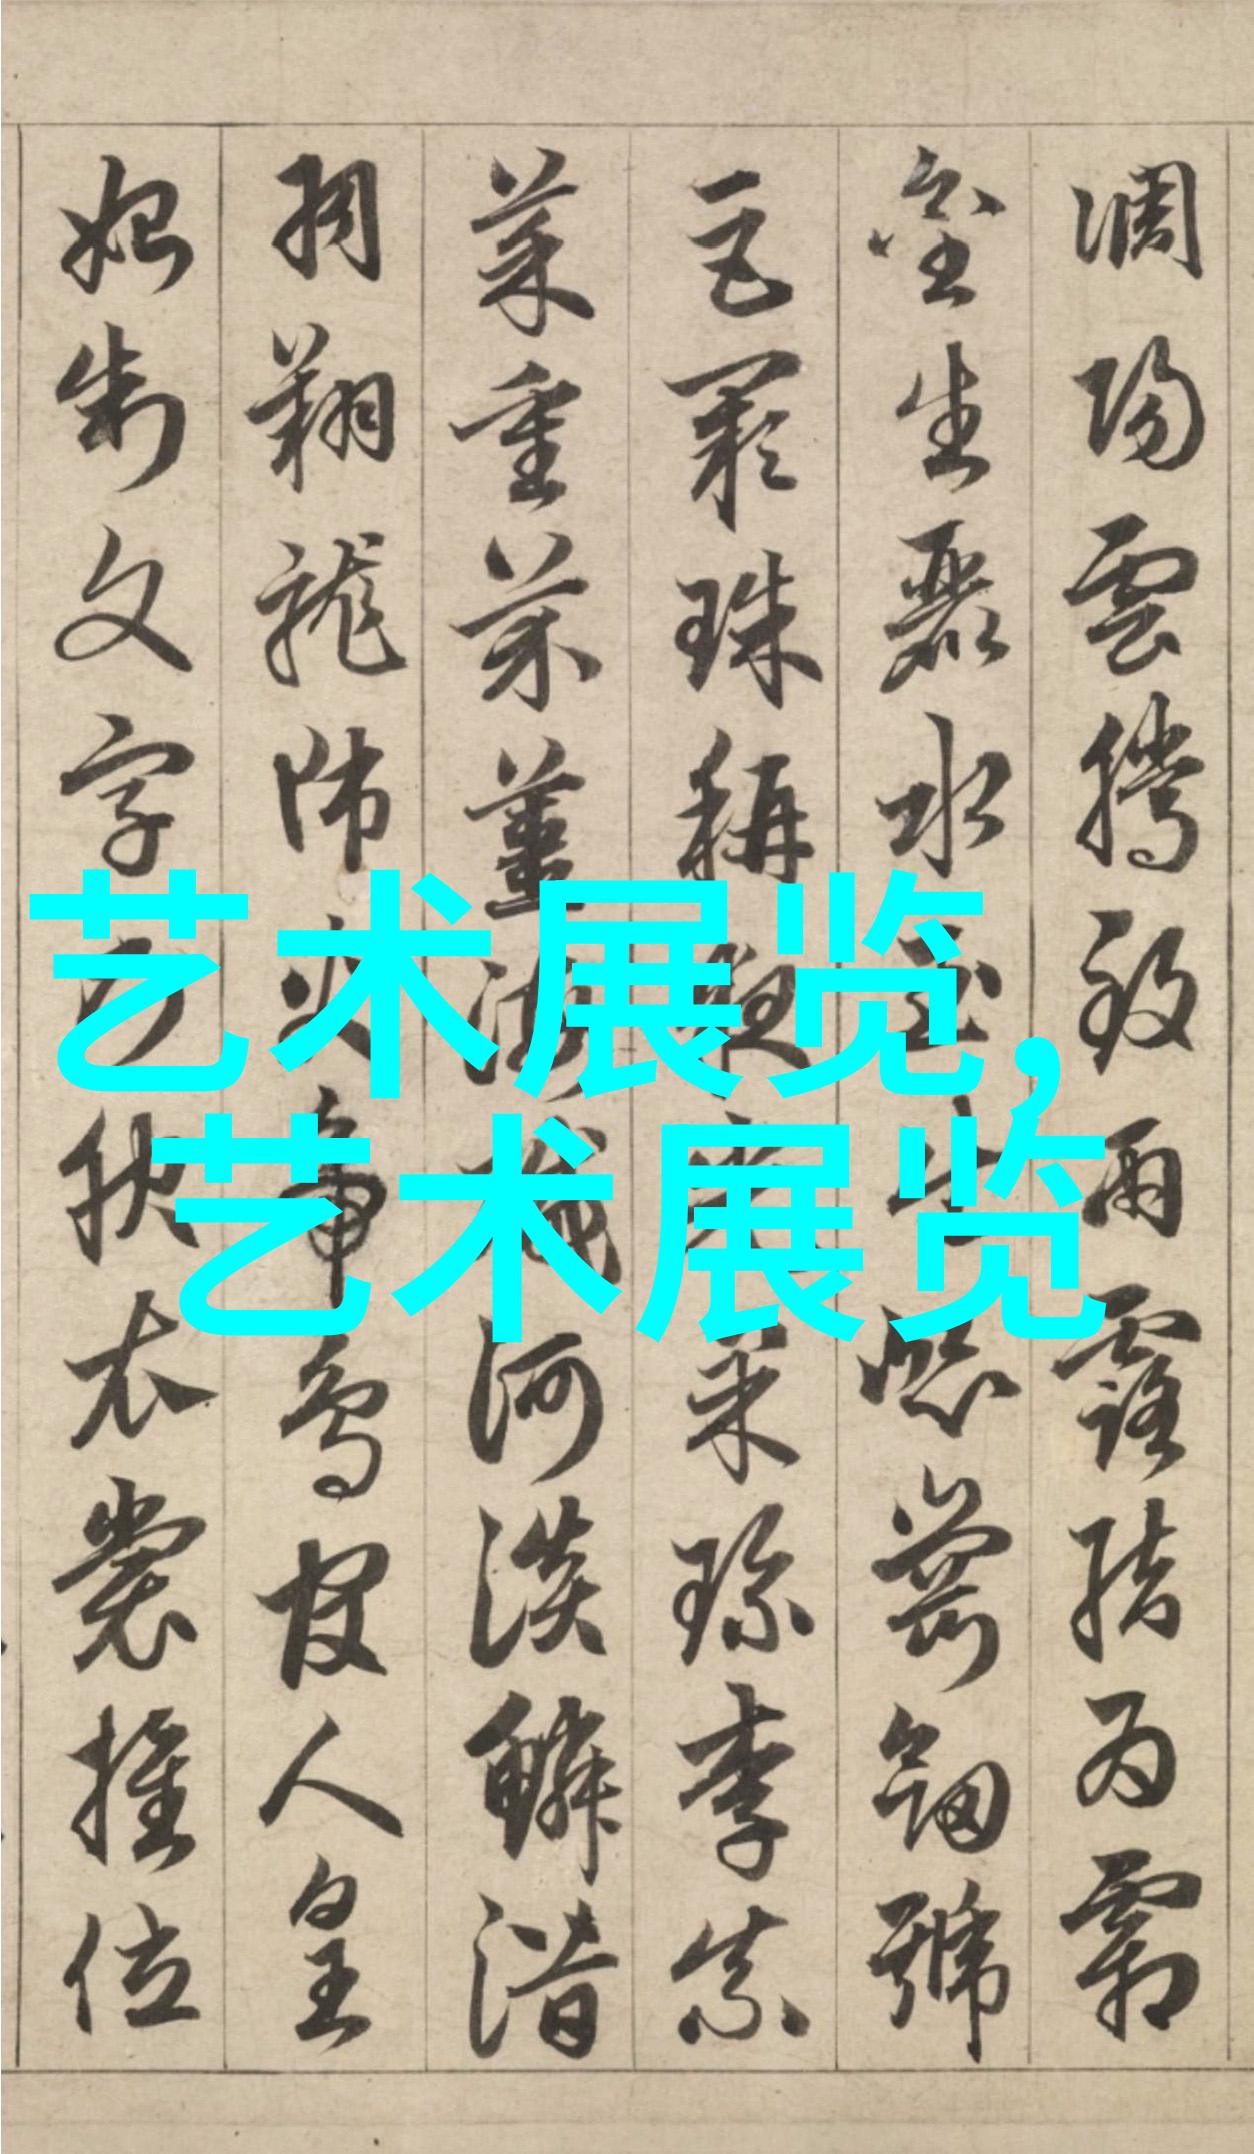 調陽雲騰致雨露結為霜
金生麗水玉出崑崗劍號
巨闕珠稱夜光菓珍李柰
菜重芥薑海鹹河淡鱗潛
羽翔龍師火帝鳥官人皇
始制文字乃服衣裳推位
艺术展览,
艺术展览